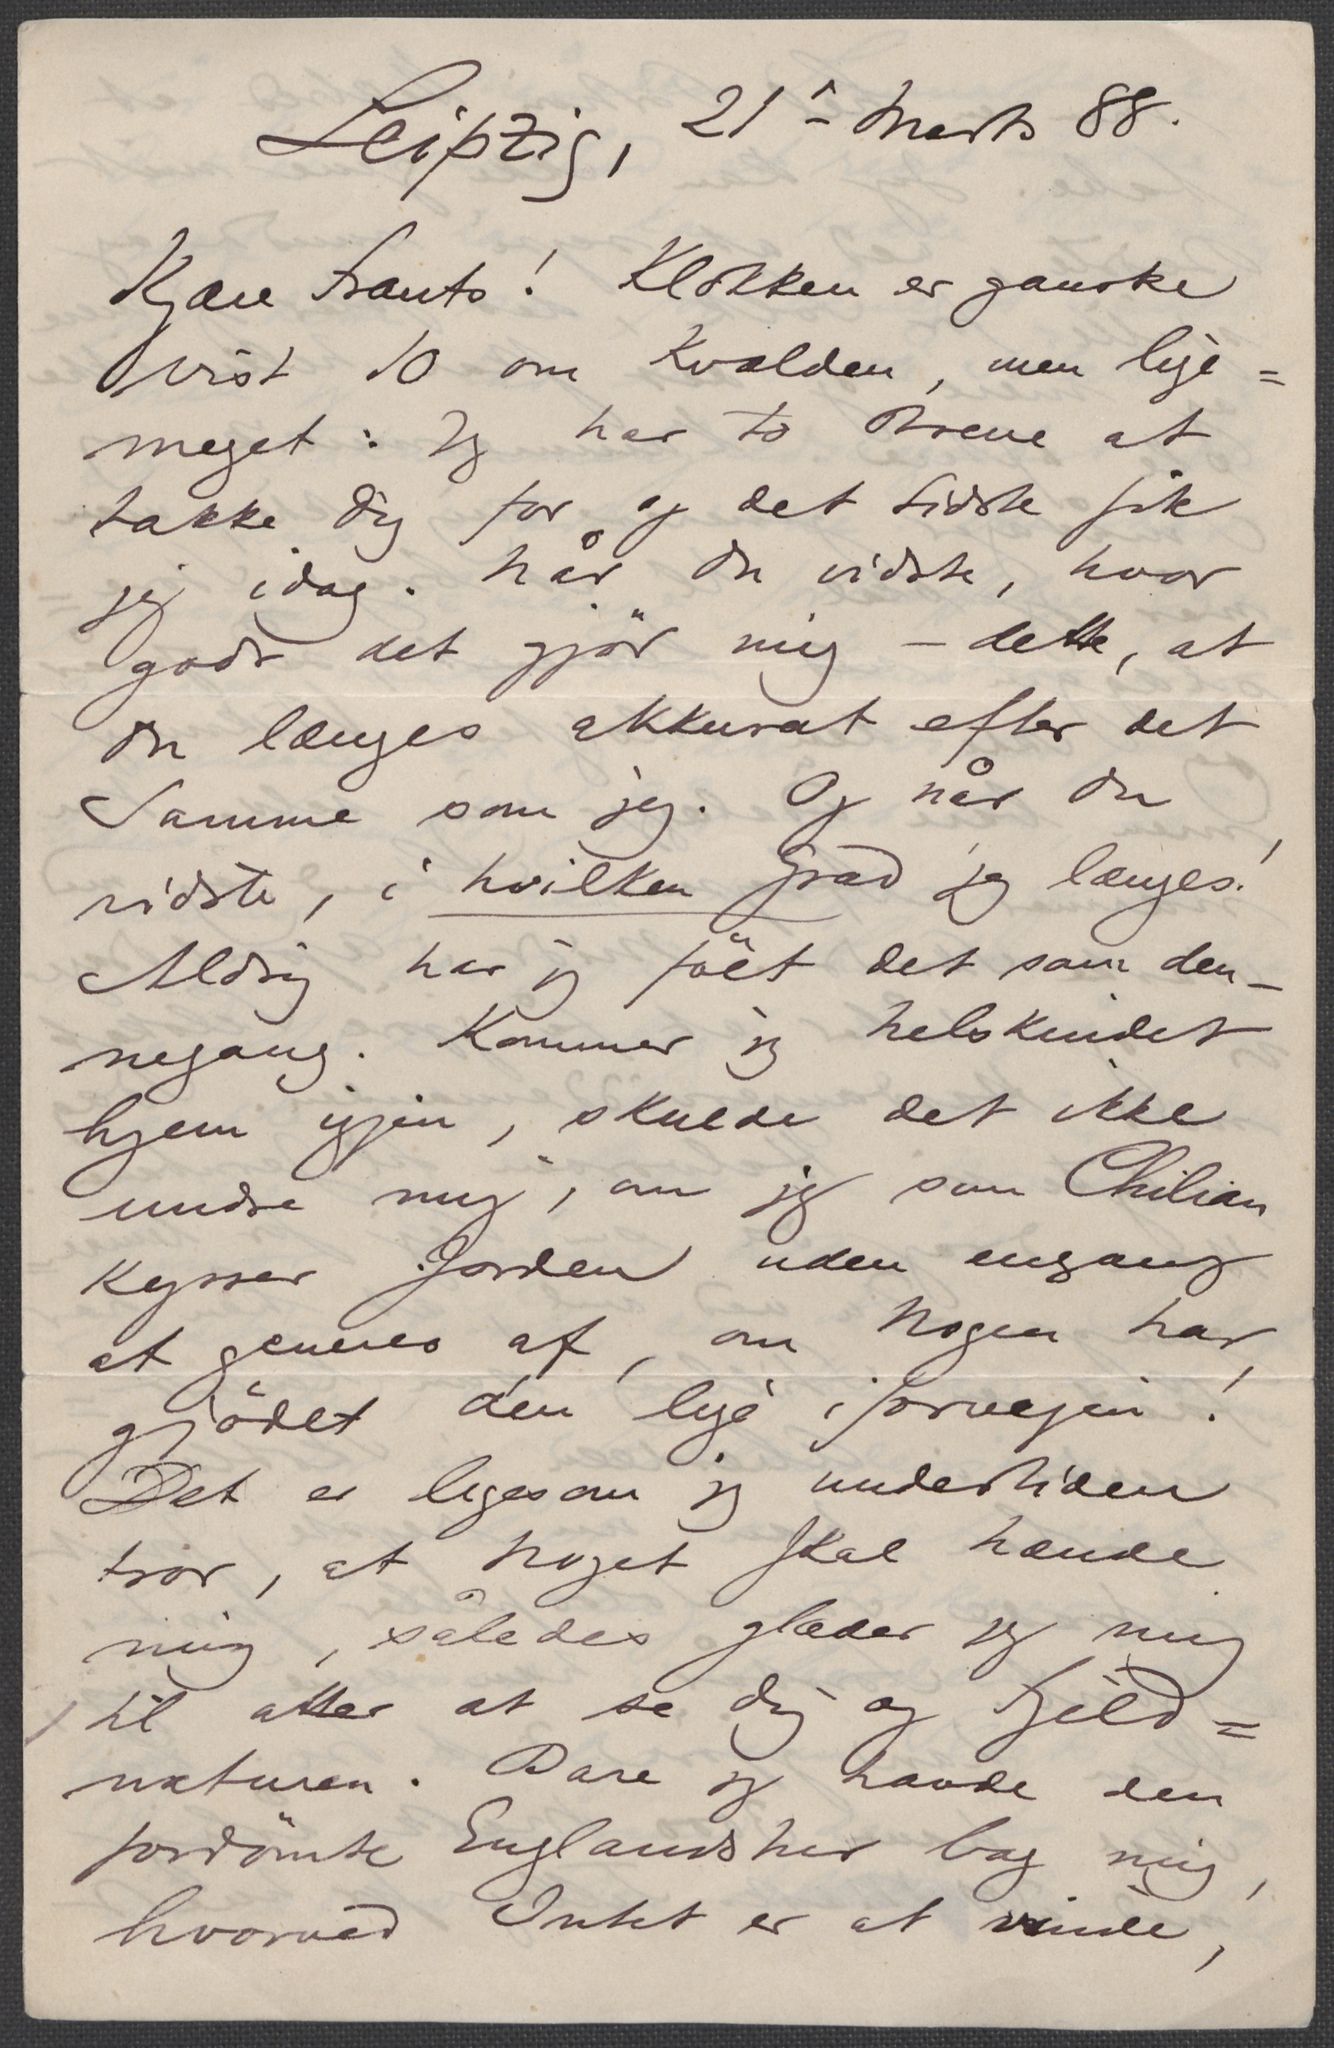 Leipzig, 21de Marts 88.
Kjære Frants! Klokken er ganske
vist 10 om Kvælden, men lige=
meget: Jeg har to Breve at
takke Dig for og det sidste fik
jeg idag. Når Du vidste, hvor
godt det gjör mig – dette, at
Du længes akkurat efter det
Samme som jeg. Og når Du
vidste, i hvilken Grad jeg længes!
Aldrig har jeg fölt det som den-
negang. Kommer jeg helskindet
hjem igjen, skulde det ikke
undre mig, om jeg som Chilian
kysser Jorden uden engang
at generes af, om Nogen har
gjödet den lige iforvejen!
Det er ligesom jeg undertiden
tror, at Noget skal hænde
mig, således glæder jeg mig
til atter at se Dig og Fjeld=
naturen. Bare jeg havde den
fordömte Englandsher bag mig,
hvorved Intet er at vinde,